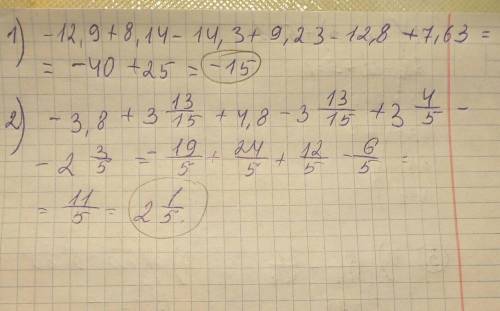 1) -12,9+8,14-14,3+9,23-12,8+7,63=
= -40+25 = -15
2) -3,8 + 3 13/15 + 4,8 - 3 13/15 + 3 4/5 -
- 2 3/5 = - 19/5 + 24/5 + 12/5 - 6/5 =
= 11/5 = 2 1/5.